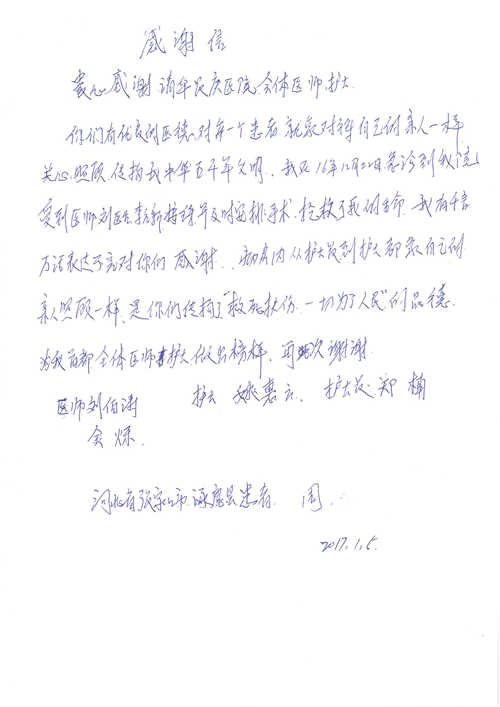 感谢信
衷心感谢清华长庚医院全体医师,护士
你们有优良的医德,对每一个患者就象对待自己的亲人一样
关心照顾,传扬我中华五千年文明、我在16年12月22日急诊到我院
受到医师刘 及时安排手术,抢救了我的生命,我有千言
万语表达不完对你们感谢、病房内从护士长到护士都象自己的
亲人照顾一样,是你们传扬了"救死扶伤,一切为了人民"的品德.
为我首都全体医师护士做出榜样,再次谢谢
医师刘伯涛 护士 姚惠 护士长:郑楠
河北省张家口市涿鹿县患者 周
2017.1.5.